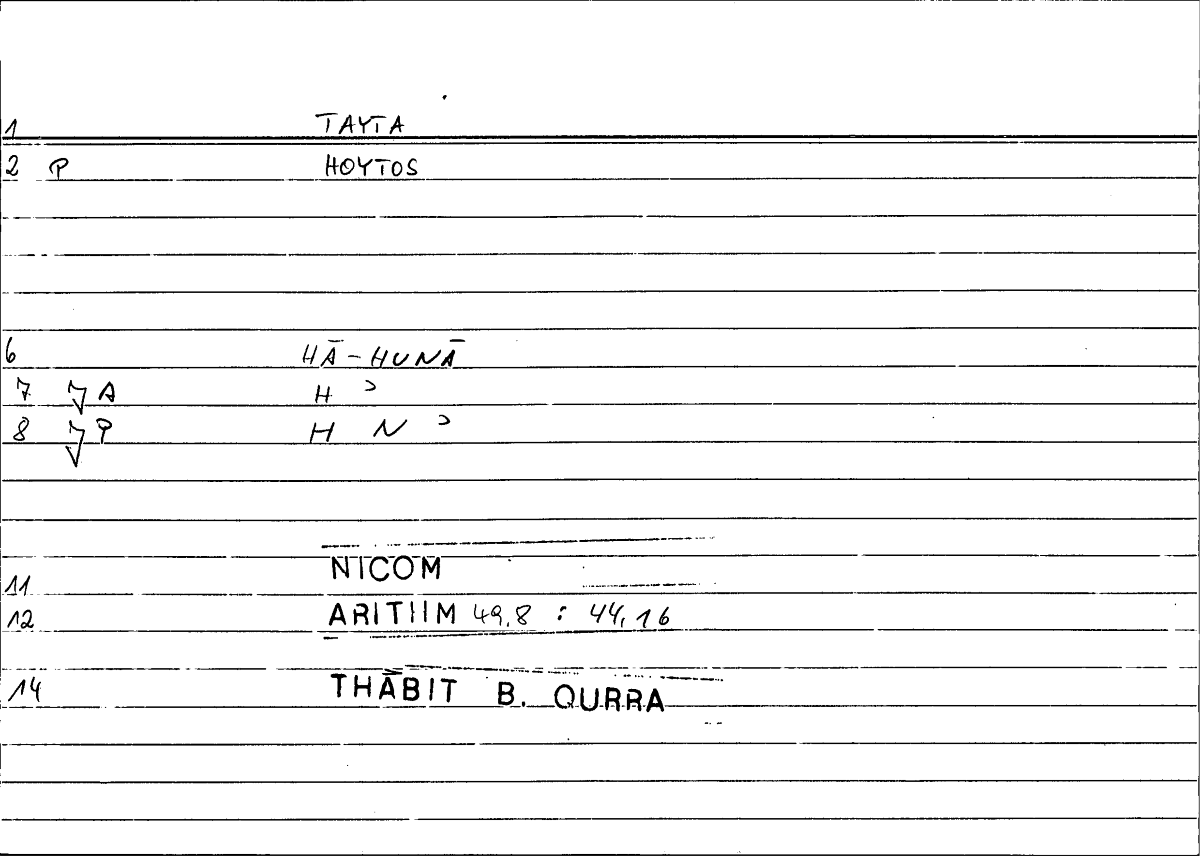 1 TAYTA
2 P HOYTOS
6 HĀ-HUNĀ
7 A H ͗
8 P H N ͗
11 NICOM
12 ARITIIM 49,8 : 44,16
14 THĀBIT B. QURRA